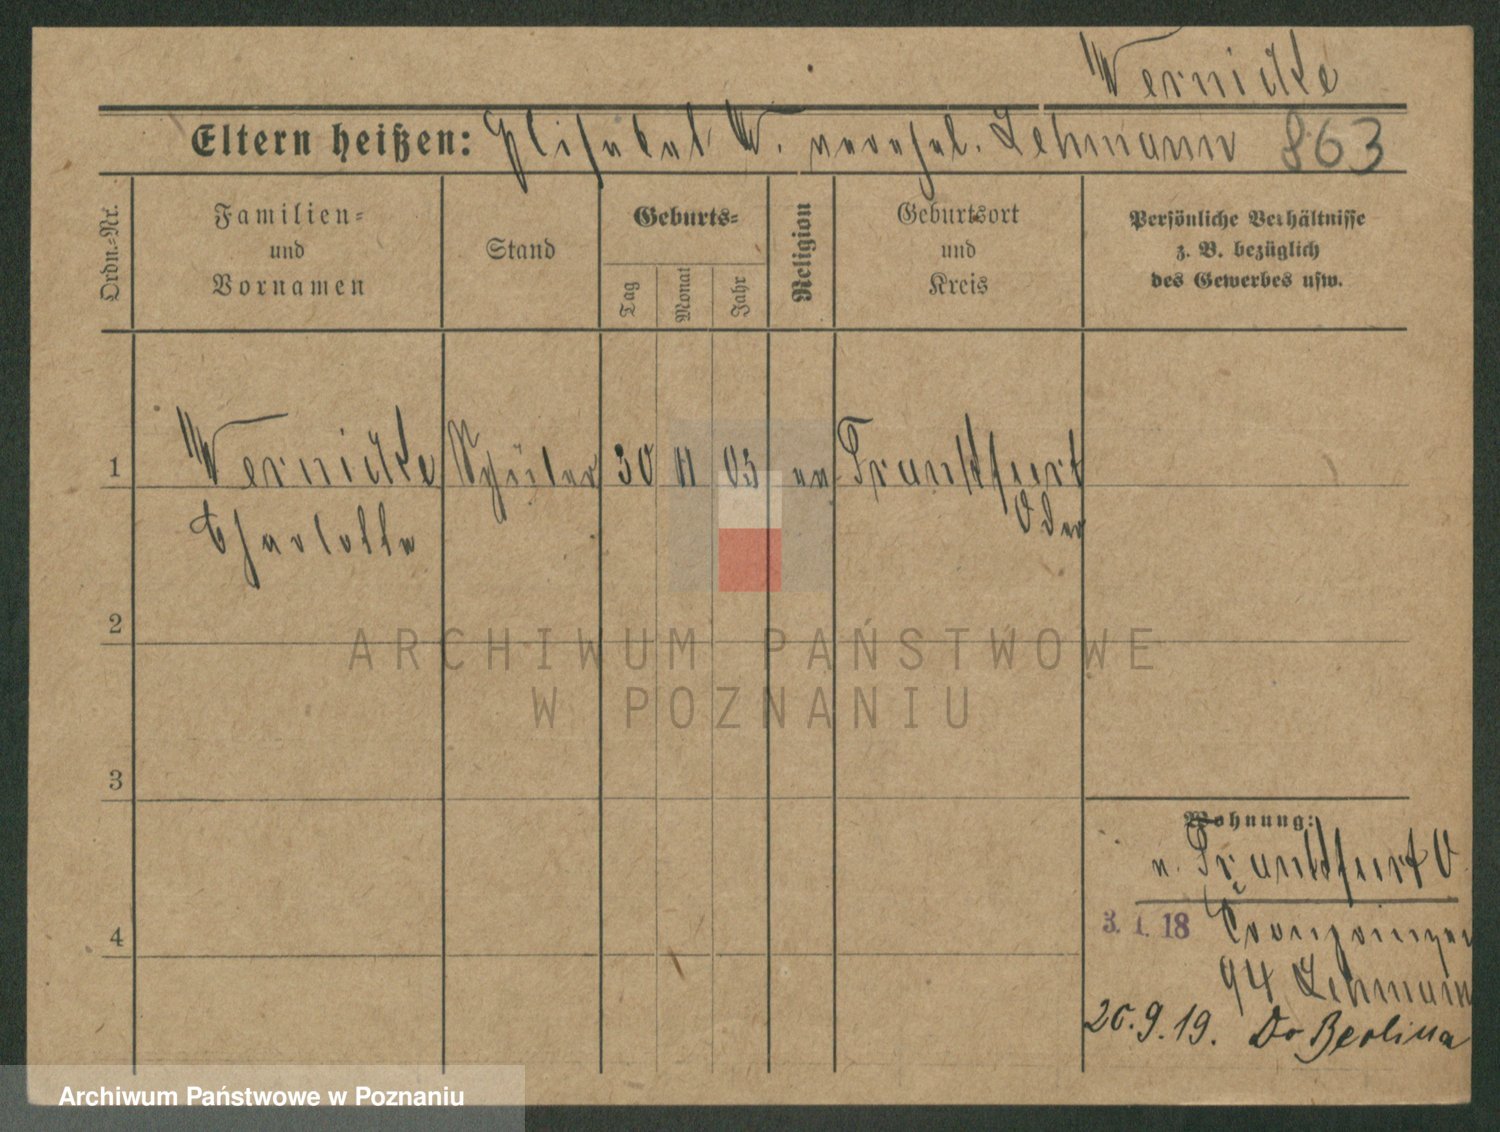 Wernicke
Eltern heißen: Elisabet W. verehel. Lehmann 863
Ordn.=Nr.
Familien=
und
Vornamen
Stand
Geburts=
Tag
Monat
Jahr
Religion
Geburtsort
und
Kreis
Persönliche Verhältnisse
z. B. bezüglich
des Gewerbes usw.
1 Wernicke Schüler 30 11 03 ev Frankfurt
Charlotte Oder
2
ARCHIWUM PAŃSTWOWE
W POZNANIU
3
Wohnung:
n. Frankfurt O
4
3. 1. 18
94 Lehmann
20.9.19.
Archiwum Państwowe w Poznaniu